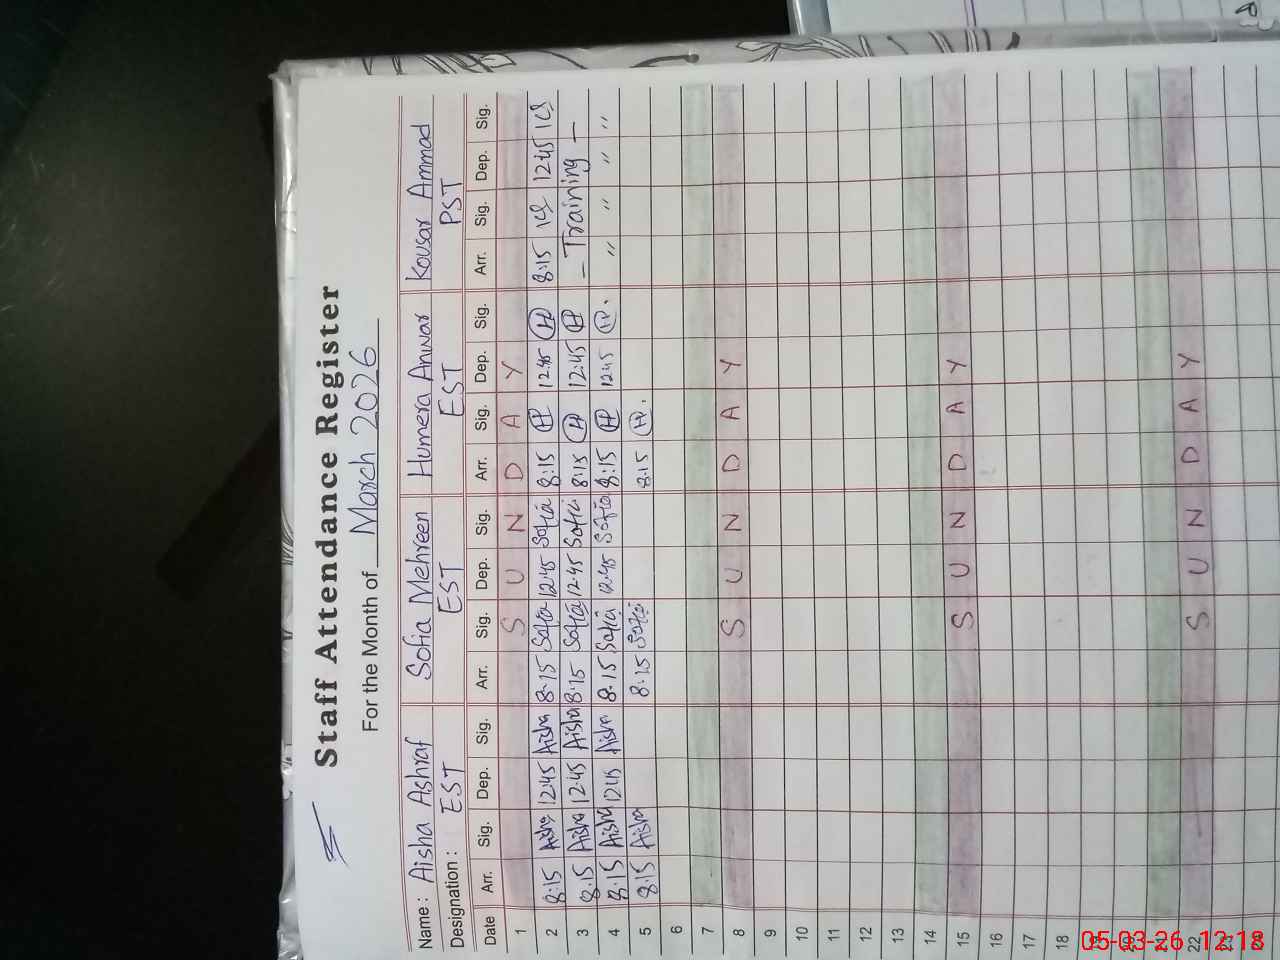 Staff Attendance Register
For the Month of March 2026
Name: Aisha Ashraf Sofia Mehreen Humera Anwar Kousar Ammad
Designation: EST EST EST PST
Date Arr. Sig. Dep. Sig. Arr. Sig. Dep. Sig. Arr. Sig. Dep. Sig. Arr. Sig. Dep. Sig.
1 S U N D A Y
2 8:15 Aisha 12:45 Aisha 8:15 Sofia 12:45 Sofia 8:15 H 12:45 H 8:15 12:45
3 8:15 Aisha 12:45 Aisha 8:15 Sofia 12:45 Sofia 8:15 H 12:45 H - Training -
4 8:15 Aisha 12:45 Aisha 8:15 Sofia 12:45 Sofia 8:15 H 12:45 H. " " " "
5 8:15 Aisha 8:15 Sofia 8:15 H.
6
7
8 S U N D A Y
9
10
11
12
13
14
15 S U N D A Y
16
17
18
19
20
21
22 S U N D A Y
23
05-03-26 12:18